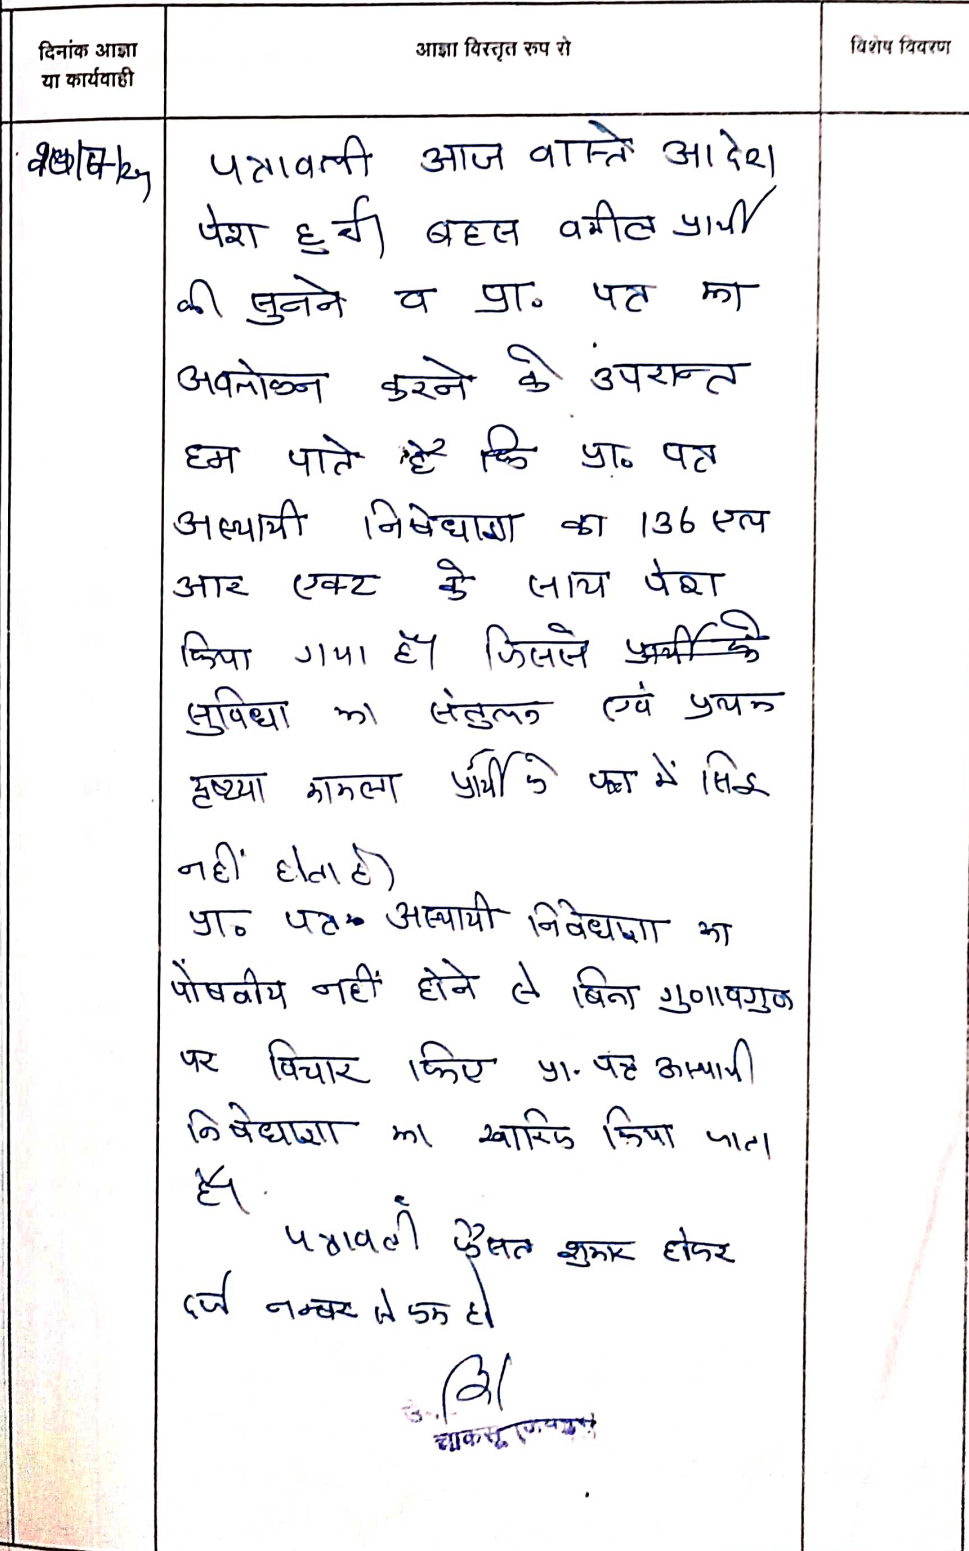 दिनांक आज्ञा
या कार्यवाही
आज्ञा विस्तृत रुप रो
विशेष विवरण
पत्रावली आज वास्ते आदेश
पेश हुई। बहस वकील प्रार्थी
की सुनने व प्रा. पत्र का
अवलोकन करने के उपरान्त
हम पाते है कि प्रा. पत्र
अस्थायी निषेधाज्ञा का 136 एल
आर एक्ट के साथ पेश
किया गया है। जिससे प्रार्थी के
सुविधा का संतुलन एवं प्रथम
दृष्टया मामला प्रार्थी के पक्ष में सिद्ध
नहीं होता है।
प्रा. पत्र अस्थायी निषेधाज्ञा का
पोषनीय नहीं होने से बिना गुणावगुण
पर विचार किए प्रा. पत्र अस्थायी
निषेधाज्ञा का खारिज किया जाता
है।
पत्रावली फैसल शुमार होकर
दर्ज नम्बर से कम हो
चाकसू (जयपुर)